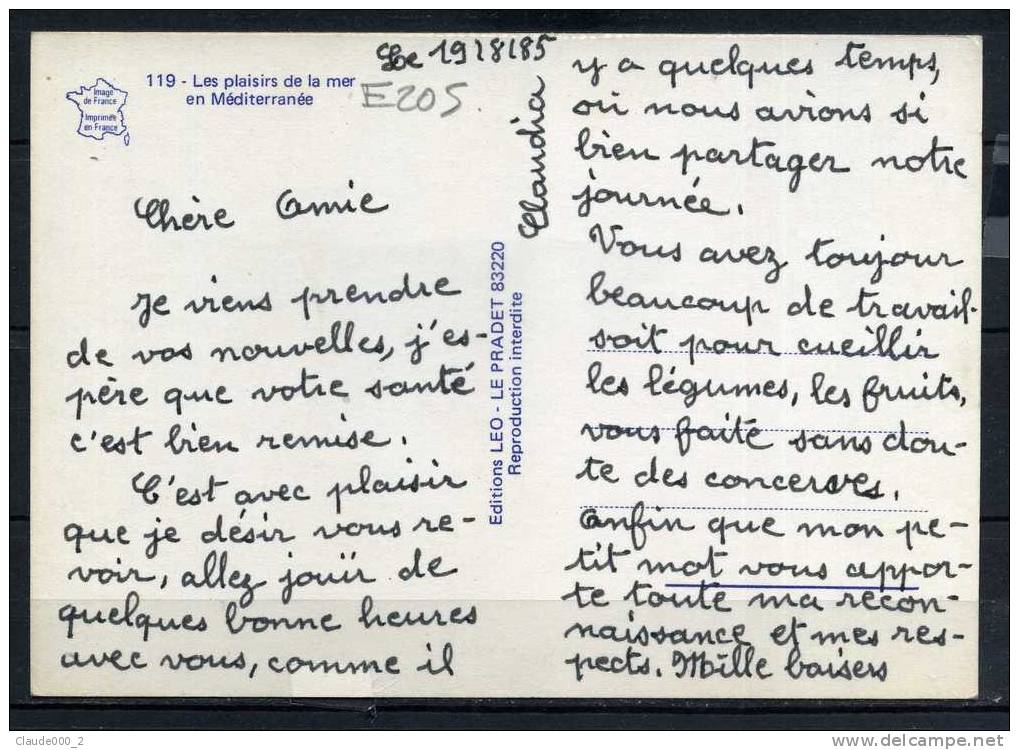 Le 19/8/85
119 - Les plaisirs de la mer
en Méditerranée
E205
Image
de France
Imprimée
en France
Chère Amie
Je viens prendre
de vos nouvelles, j'es-
père que votre santé
c'est bien remise.
C'est avec plaisir
que je désir vous re-
voir, allez jouïr de
quelques bonne heures
avec vous, comme il
Editions LEO - LE PRADET 83220
Reproduction interdite
y a quelques temps,
où nous avions si
bien partager notre
journée.
Vous avez toujour
beaucoup de travail-
soit pour cueillir
les légumes, les fruits,
vous faite sans dou-
te des concerves.
Anfin que mon pe-
tit mot vous appor-
te toute ma recon-
naissance et mes res-
pects. Mille baisers
Claudia
Claude000_2
www.delcampe.net